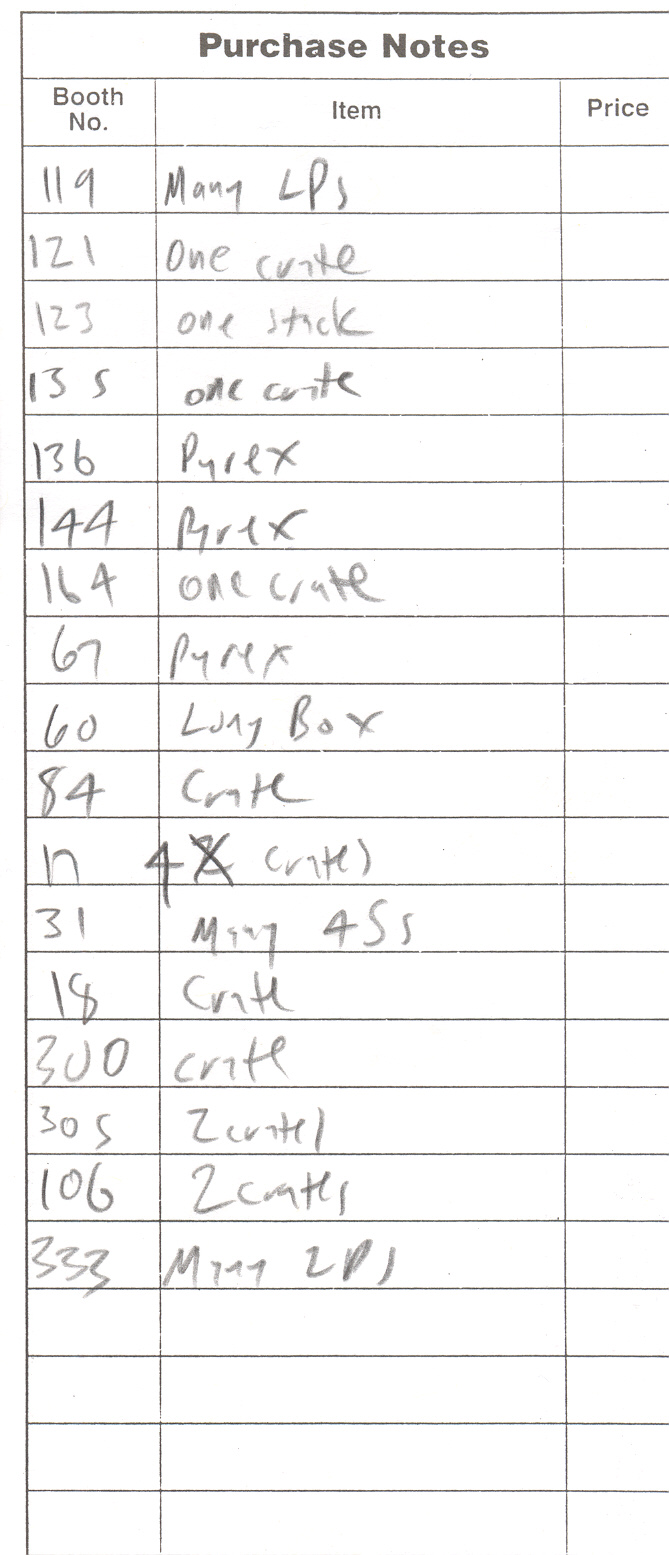 Purchase Notes
Booth No. Item Price
119 Many LPs
121 One crate
123 one stack
135 one crate
136 Pyrex
144 Pyrex
164 one crate
67 Pyrex
60 Long Box
84 Crate
4 crates
31 Many 45s
18 Crate
300 crate
305 2 crates
106 2 crates
333 Many LPs